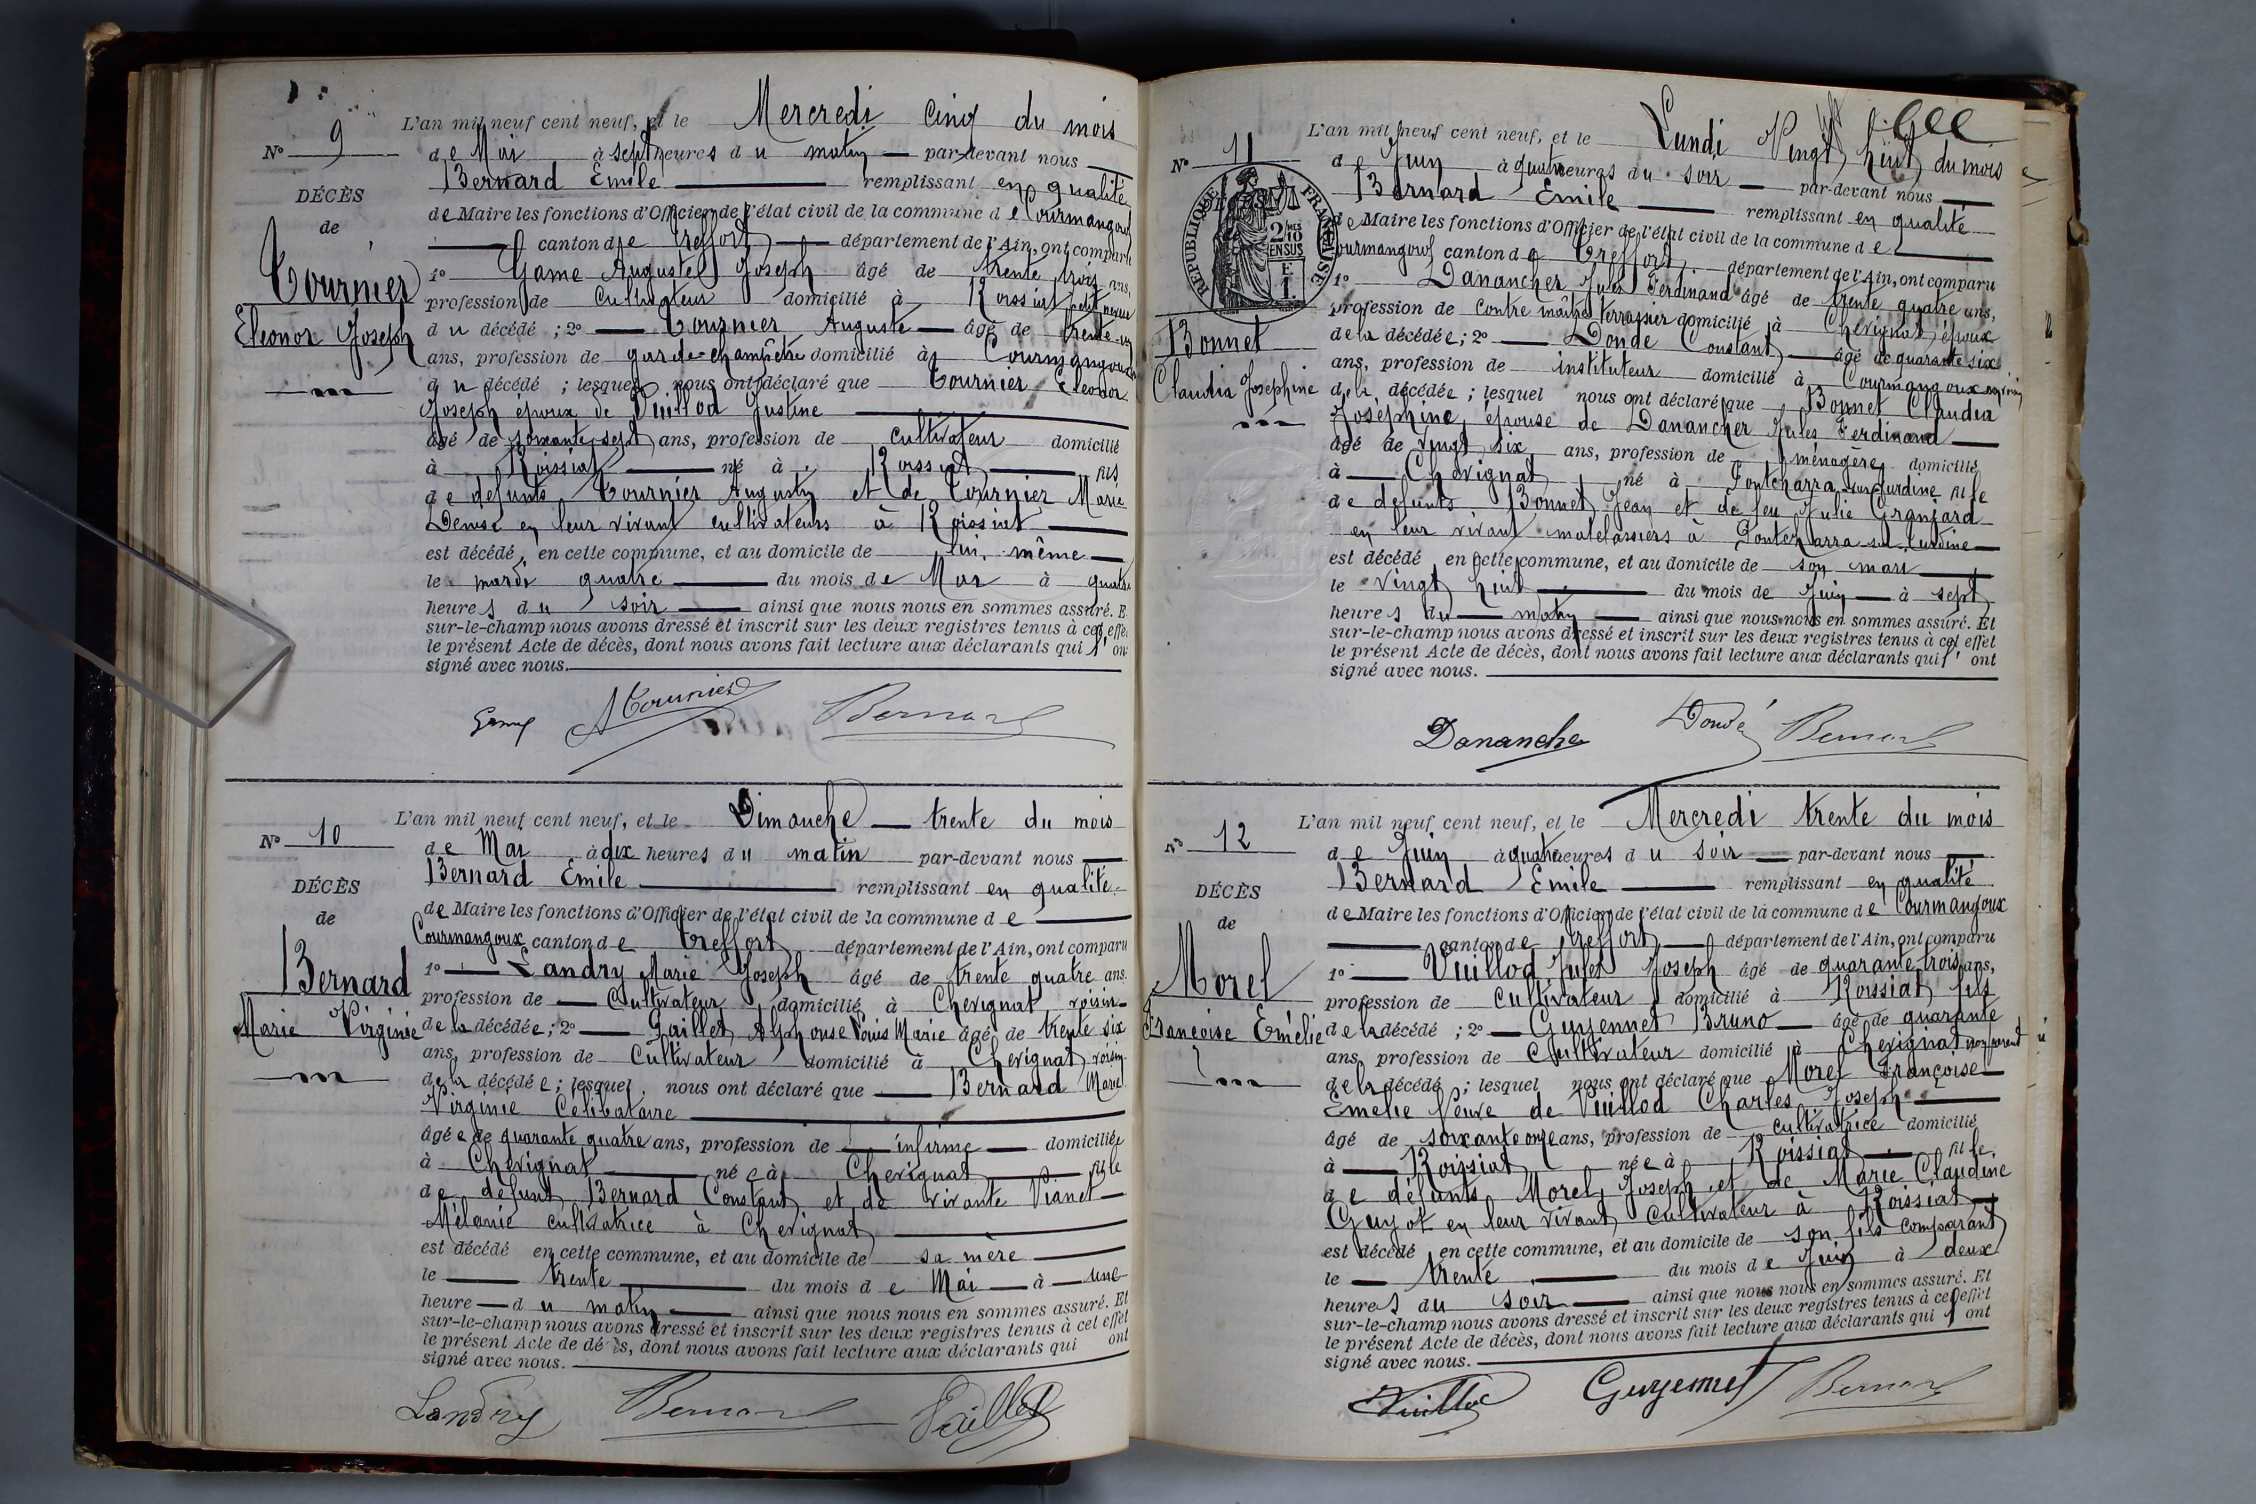 L'an mil neuf cent neuf, et le Mercredi cinq du mois
No 9
de Mai à sept heures du matin par-devant nous
Bernard Emile remplissant en qualité
DÉCÈS
de Maire les fonctions d'Officier de l'état civil de la commune de Courmangoux
de
canton de Treffort département de l'Ain, ont comparu
Tournier
1o Game Auguste Joseph âgé de trente trois ans,
profession de cultivateur domicilié à Roissiat petit neveu
Eléonor Joseph
du décédé ; 2o Tournier Auguste âgé de trente
ans, profession de garde-champêtre domicilié à Courmangoux
du décédé ; lesquels nous ont déclaré que Tournier Eléonor
Joseph époux de Vuillod Justine
âgé de soixante sept ans, profession de cultivateur domicilié
à Roissiat né à Roissiat fils
de défunts Tournier Augustin et de Tournier Marie
Denise en leur vivant cultivateurs à Roissiat
est décédé, en cette commune, et au domicile de lui même
le mardi quatre du mois de Mai à quatre
heures du soir ainsi que nous nous en sommes assuré. E
sur-le-champ nous avons dressé et inscrit sur les deux registres tenus à cet effet
le présent Acte de décès, dont nous avons fait lecture aux déclarants qui on
signé avec nous.
Game ATournier Bernard
L'an mil neuf cent neuf, et le Dimanche trente du mois
No 10
de Mai à dix heures du matin par-devant nous
Bernard Emile remplissant en qualité
DÉCÈS
de Maire les fonctions d'Officier de l'état civil de la commune de
de
Courmangoux canton de Treffort département de l'Ain, ont comparu
Bernard
1o Landry Marie Joseph âgé de trente quatre ans.
profession de Cultivateur domicilié à Chevignat voisin
Marie Virginie
de la décédée ; 2o Paillet Alphonse Louis Marie âgé de trente six
ans, profession de Cultivateur domicilié à Chevignat voisin
de la décédée ; lesquel nous ont déclaré que Bernard Marie
Virginie Célibataire
âgée de quarante quatre ans, profession de infirme domiciliée
à Chevignat née à Chevignat fille
de défunt Bernard Constant et de vivante Vianet
Mélanie cultivatrice à Chevignat
est décédé en cette commune, et au domicile de sa mère
le trente du mois de Mai à une
heure du matin ainsi que nous nous en sommes assuré. Et
sur-le-champ nous avons dressé et inscrit sur les deux registres tenus à cet effet
le présent Acte de décès, dont nous avons fait lecture aux déclarants qui ont
signé avec nous.
Landry Bernard Paillet
L'an mil neuf cent neuf, et le Lundi Vingt huit du mois
No 11
de Juin à quatre heures du soir par-devant nous
Bernard Emile remplissant en qualité
RÉPUBLIQUE FRANÇAISE
2/10 EN SUS
de Maire les fonctions d'Officier de l'état civil de la commune de
Courmangoux canton de Treffort département de l'Ain, ont comparu
1o Danancher Jules Ferdinand âgé de trente quatre ans,
profession de contre maître terrassier domicilié à Chevignat époux
Bonnet
de la décédée ; 2o Donde Constant âgé de quarante six
ans, profession de instituteur domicilié à Courmangoux
Claudia Josephine
de la décédée ; lesquel nous ont déclaré que Bonnet Claudia
Joséphine, épouse de Danancher Jules Ferdinand
âgé de vingt six ans, profession de ménagère domicilié
à Chevignat né à Pontcharra sur Turdine fille
de défunts Bonnet Jean et de feu Julie Granjard
en leur vivant matelassiers à Pontcharra sur Turdine
est décédé en cette commune, et au domicile de son mari
le vingt huit du mois de Juin à sept
heures du matin ainsi que nous nous en sommes assuré. Et
sur-le-champ nous avons dressé et inscrit sur les deux registres tenus à cet effet
le présent Acte de décès, dont nous avons fait lecture aux déclarants qui ont
signé avec nous.
Dananche Dondé Bernard
L'an mil neuf cent neuf, et le Mercredi trente du mois
No 12
de Juin à quatre heures du soir par-devant nous
Bernard Emile remplissant en qualité
DÉCÈS
de Maire les fonctions d'Officier de l'état civil de la commune de Courmangoux
de
canton de Treffort département de l'Ain, ont comparu
Morel
1o Vuillod Jules Joseph âgé de quarante trois ans,
profession de Cultivateur domicilié à Roissiat fils
Françoise Emélie
de la décédé ; 2o Guyennet Bruno âgé de quarante
ans, profession de Cultivateur domicilié à Chevignat non parent
de la décédé ; lesquel nous ont déclaré que Morel Françoise
Emelie Veuve de Vuillod Charles Joseph
âgé de soixante onze ans, profession de cultivatrice domicilié
à Roissiat née à Roissiat fille
de défunts Morel Joseph et de Marie Claudine
Guyot en leur vivant cultivateur à Roissiat
est décédé en cette commune, et au domicile de son fils comparant
le trente du mois de Juin à deux
heures du soir ainsi que nous nous en sommes assuré. Et
sur-le-champ nous avons dressé et inscrit sur les deux registres tenus à cet effet
le présent Acte de décès, dont nous avons fait lecture aux déclarants qui ont
signé avec nous.
Vuillod Guyennet Bernard